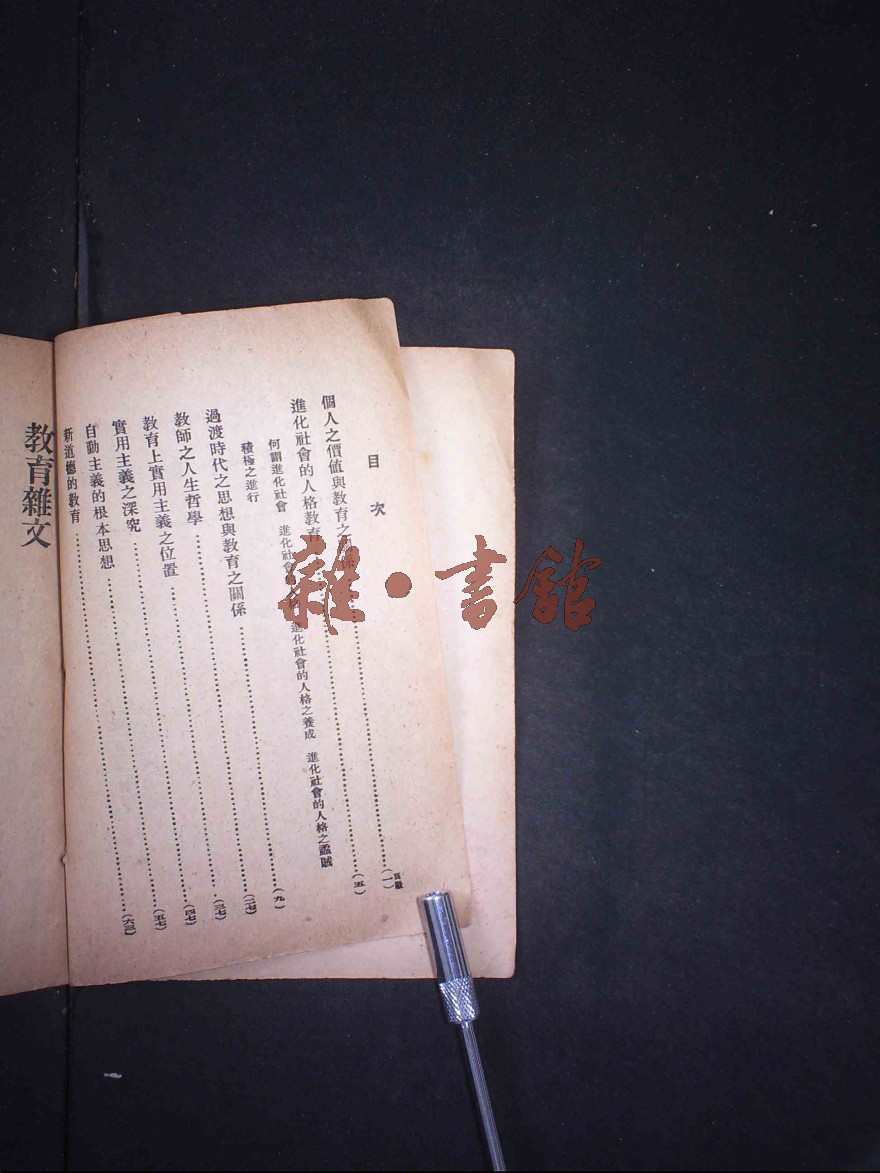 目次
頁數
個人之價值與教育之關係……(一)
進化社會的人格教育……(五)
何謂進化社會　進化社會的人格　進化社會的人格之養成　進化社會的人格之蟊賊
積極之進行
過渡時代之思想與教育之關係……(九)
教師之人生哲學……(二七)
教育上實用主義之位置……(三七)
實用主義之深究……(四七)
自動主義的根本思想……(五七)
新道德的教育……(六三)
教育雜文
雜·書館